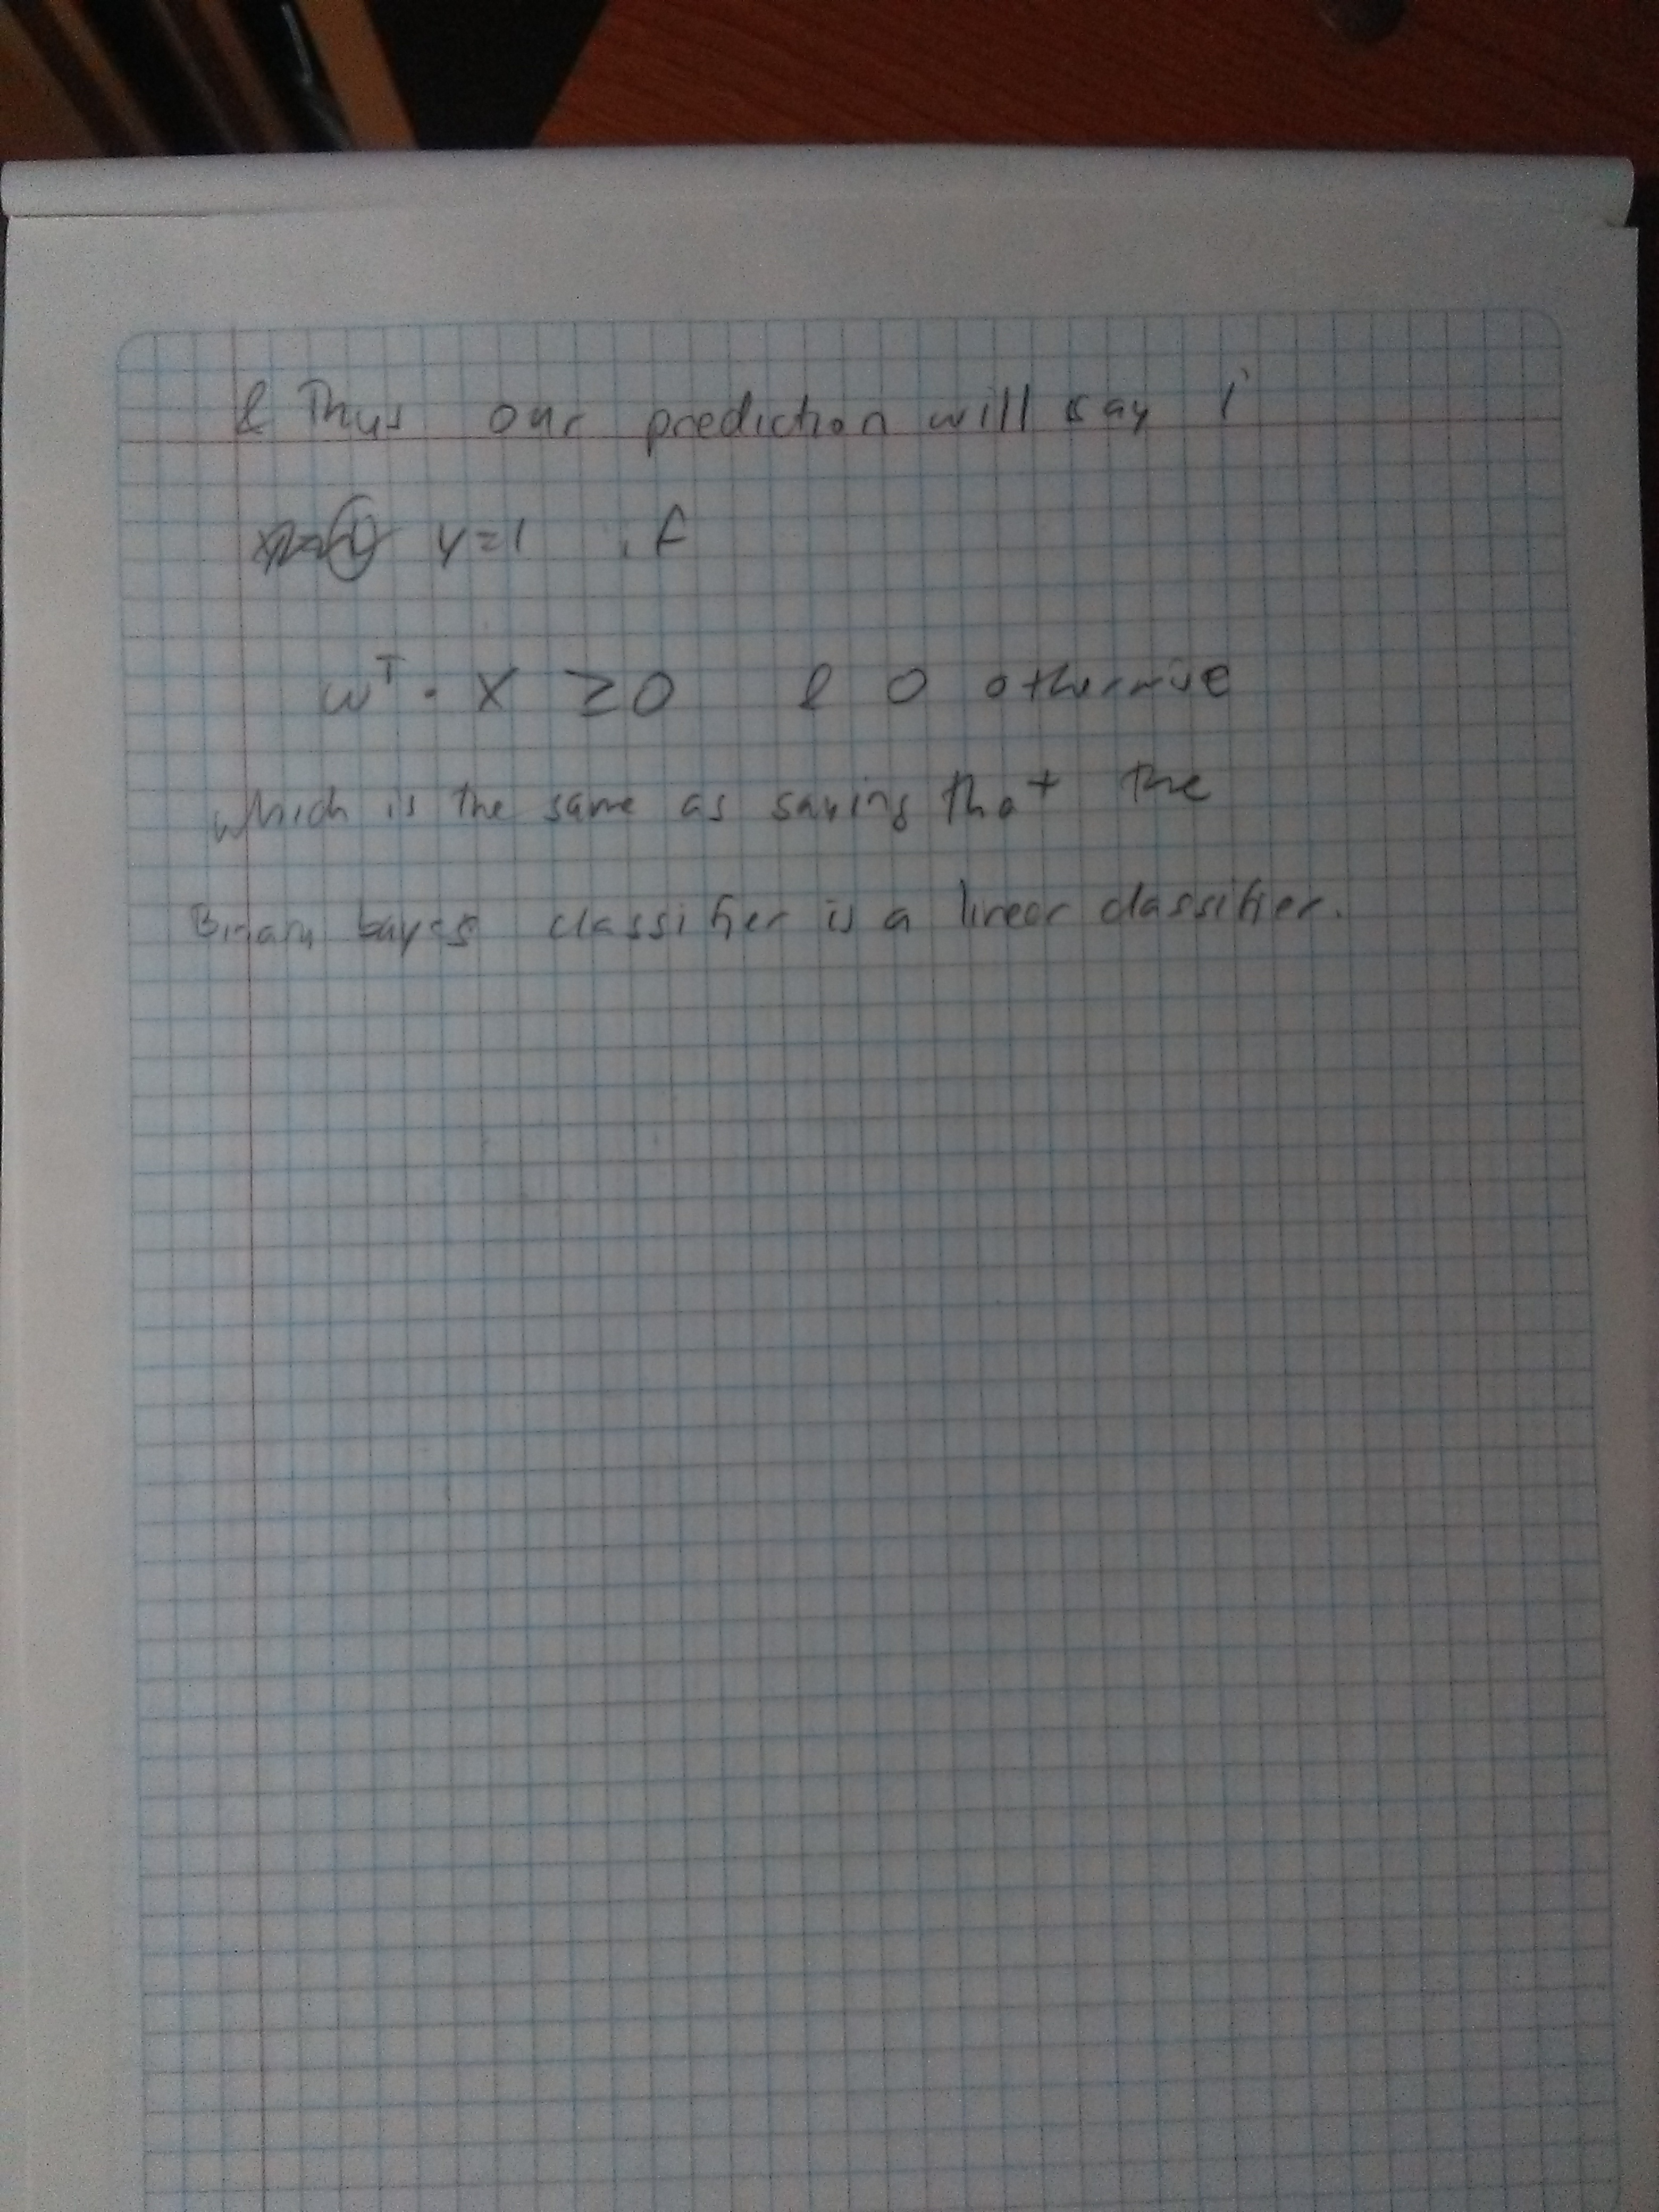 & Thus our prediction will say 1
y=1 if
w^T · x ≥0 & 0 otherwise
which is the same as saying that the
Binary bayes classifier is a linear classifier.